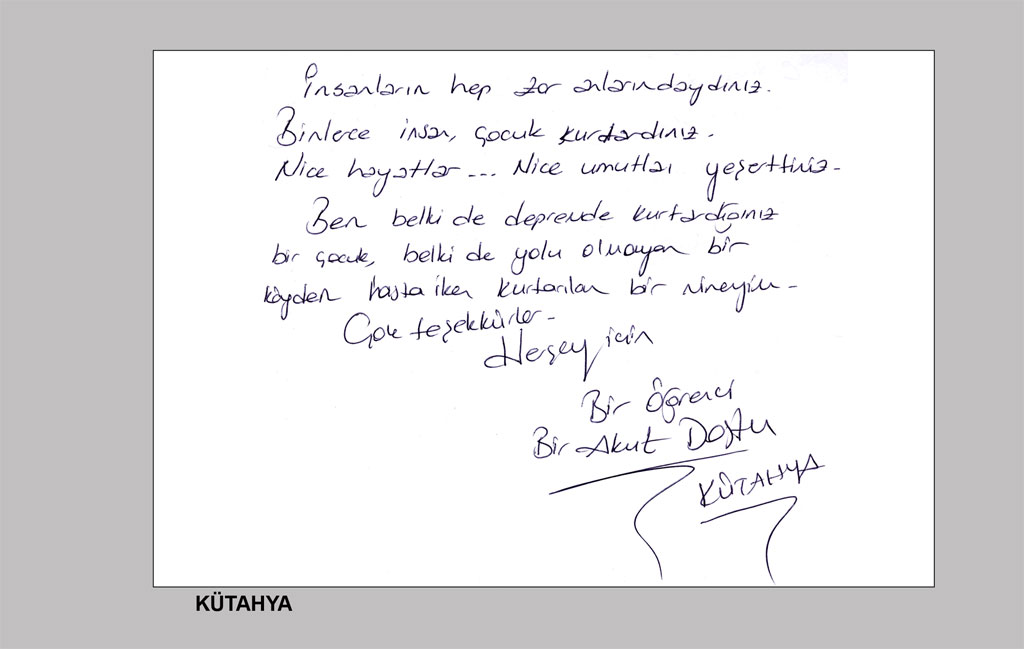 İnsanların hep zor anlarındaydınız.
Binlerce insan, çocuk kurtardınız.
Nice hayatlar... Nice umutları yeşerttiniz.
Ben belki de depremde kurtardığınız
bir çocuk, belki de yolu olmayan bir
köyden hasta iken kurtarılan bir nineyim.
Çok teşekkürler.
Herşey için
Bir Öğrenci
Bir Akut Dostu
KÜTAHYA
KÜTAHYA